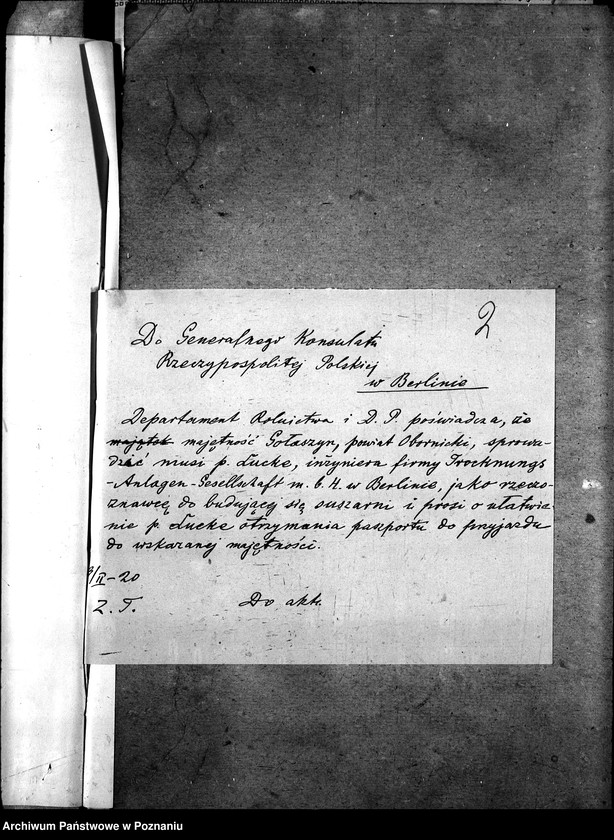 2
Do Generalnego Konsulatu
Rzeczypospolitej Polskiej
w Berlinie
Departament Rolnictwa i D. P. poświadcza, że
majątek majętność Gołaszyn, powiat Obornicki, sprowa-
dzić musi p. Lucke, inżyniera firmy Trocknungs
-Anlagen-Gesellschaft m. b. H. w Berlinie, jako rzeczo-
znawcę do budującej się suszarni i prosi o ułatwie-
nie p. Lucke otrzymania paszportu do przyjazdu
do wskazanej majętności.
/II-20
Z. T. Do akt.
Archiwum Państwowe w Poznaniu